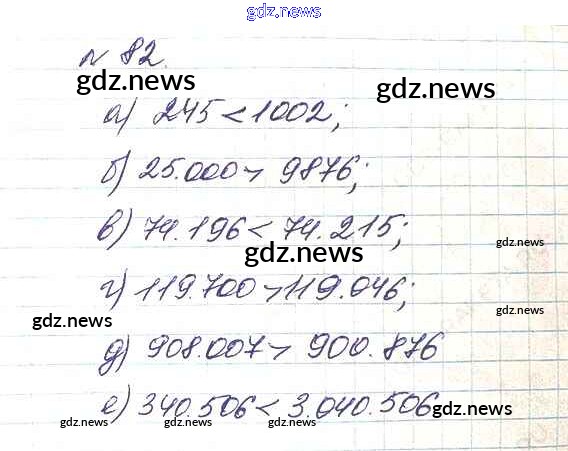 gdz.news
№ 82.
gdz.news
gdz.news
а) 245 < 1002;
б) 25.000 > 9876;
в) 74.196 < 74.215;
gdz.news
gdz.news
г) 119.700 > 119.046;
gdz.news
д) 908.007 > 900.876
е) 340.506 < 3.040.506
gdz.news
gdz.news
gdz.news
gdz.news
gdz.news